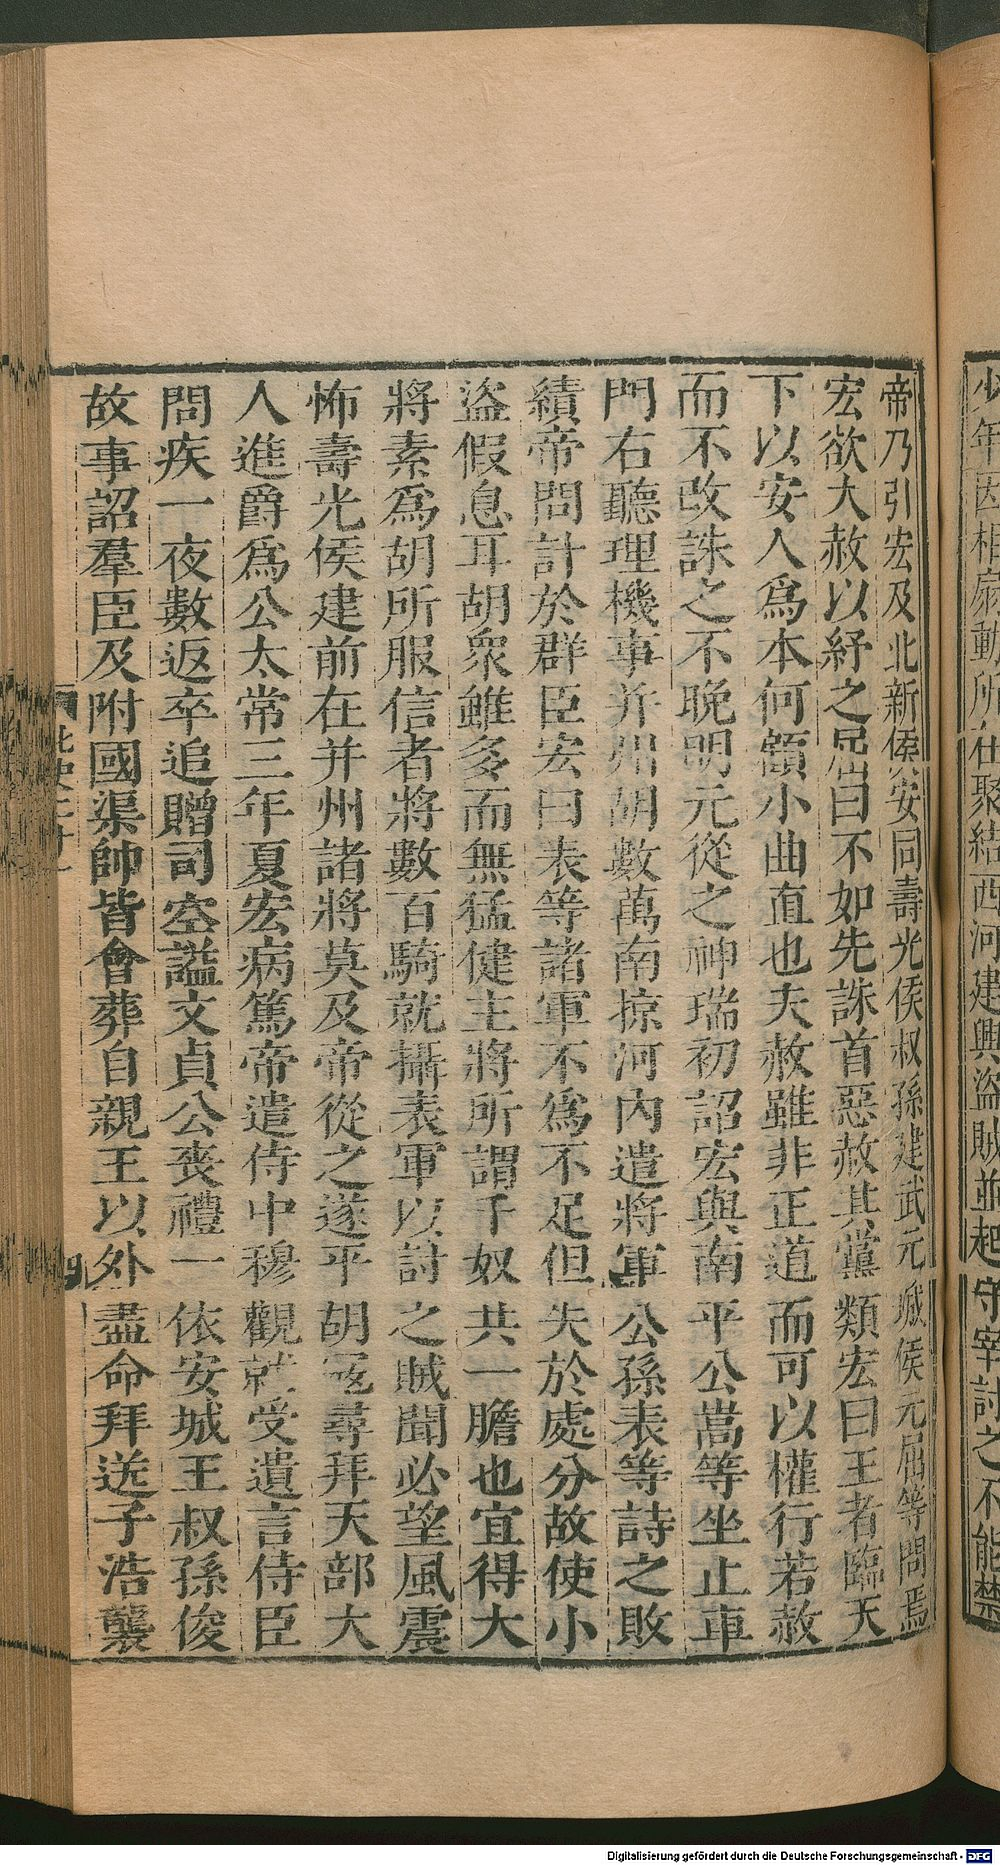 少年因相扇動所在聚結西河建興盜賊並起守宰討之不能禁
帝乃引宏及北新侯安同壽光侯叔孫建武元城侯元屈等問焉
宏欲大赦以紓之屈曰不如先誅首惡赦其黨類宏曰王者臨天
下以安人爲本何顧小曲直也夫赦雖非正道而可以權行若赦
而不改誅之不晚明元從之神瑞初詔宏與南平公嵩等坐止車
門右聽理機事并州胡數萬南掠河內遣將軍公孫表等討之敗
績帝問計於群臣宏曰表等諸軍不爲不足但失於處分故使小
盜假息耳胡衆雖多而無猛健主將所謂千奴共一膽也宜得大
將素爲胡所服信者將數百騎就攝表軍以討之賊聞必望風震
怖壽光侯建前在并州諸將莫及帝從之遂平胡寇尋拜天部大
人進爵爲公太常三年夏宏病篤帝遣侍中穆觀就受遺言侍臣
問疾一夜數返卒追贈司空謚文貞公喪禮一依安城王叔孫俊
故事詔羣臣及附國渠帥皆會葬自親王以外盡命拜送子浩襲
北史二十一
四
Digitalisierung gefördert durch die Deutsche Forschungsgemeinschaft - DFG